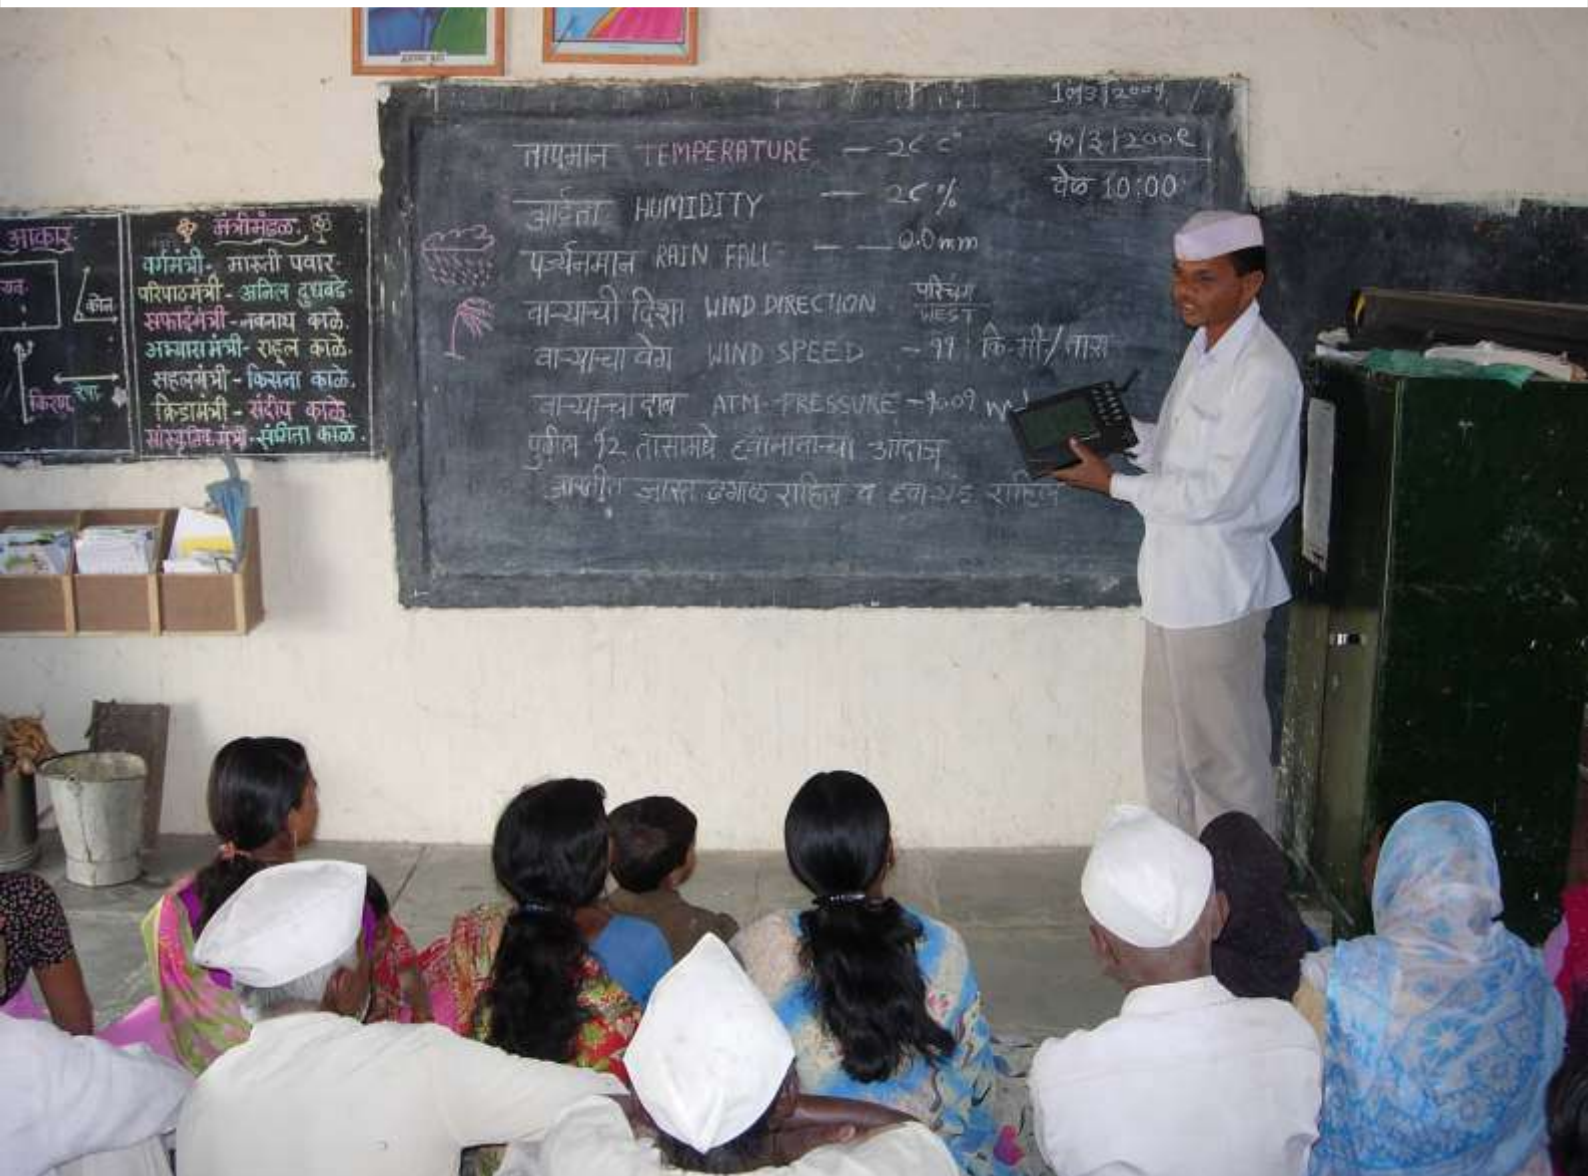 आकार
कोन
किरण
रेषा
मंत्रीमंडळ.
वर्गमंत्री- मारुती पवार.
परिपाठमंत्री- अनिल दुधवडे.
सफाईमंत्री-नवनाथ काळे.
अभ्यास मंत्री- राहूल काळे.
सहलमंत्री- किसना काळे.
क्रिडामंत्री- संदीप काळे.
सांस्कृतिक मंत्री-संगिता काळे.
१०/३/२००९
वेळ 10:00
तापमान TEMPERATURE — २८ c°
आर्द्रता HUMIDITY — २८ %
पर्ज्यनमान RAIN FALL — — 0.0 mm
वाऱ्याची दिशा WIND DIRECTION पश्चिम
WEST
वाऱ्याचा वेग WIND SPEED - ११ कि.मी/तास
वाऱ्याचा दाब ATM-PRESSURE -१००९
पुढील १२ तासामधे हवामानाचा अंदाज
जास्त ढगाळ राहिल व राहिल